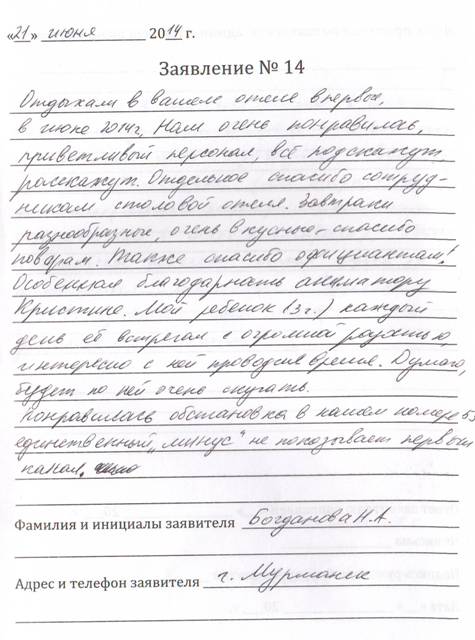 «21» июня 2014 г.
Заявление № 14
Отдыхали в вашем отеле впервые,
в июне 2014г, Нам очень понравилась,
приветливый персонал, всё подскажут
расскажут. Отдельное спасибо сотруд-
никам столовой отеля. Завтраки
разнообразные, очень вкусные - спасибо
поварам. Также спасибо официантам!
Особенная благодарность аниматору
Кристине. Мой ребенок (3г.) каждый
день её встречал с огромной радостью,
интересно с ней проводил время. Думаю,
будет по ней очень скучать.
Понравилась обстановка в нашем номере
единственный „минус" не показывает первый
канал.
Фамилия и инициалы заявителя Богданова Н.А.
Адрес и телефон заявителя г. Мурманск